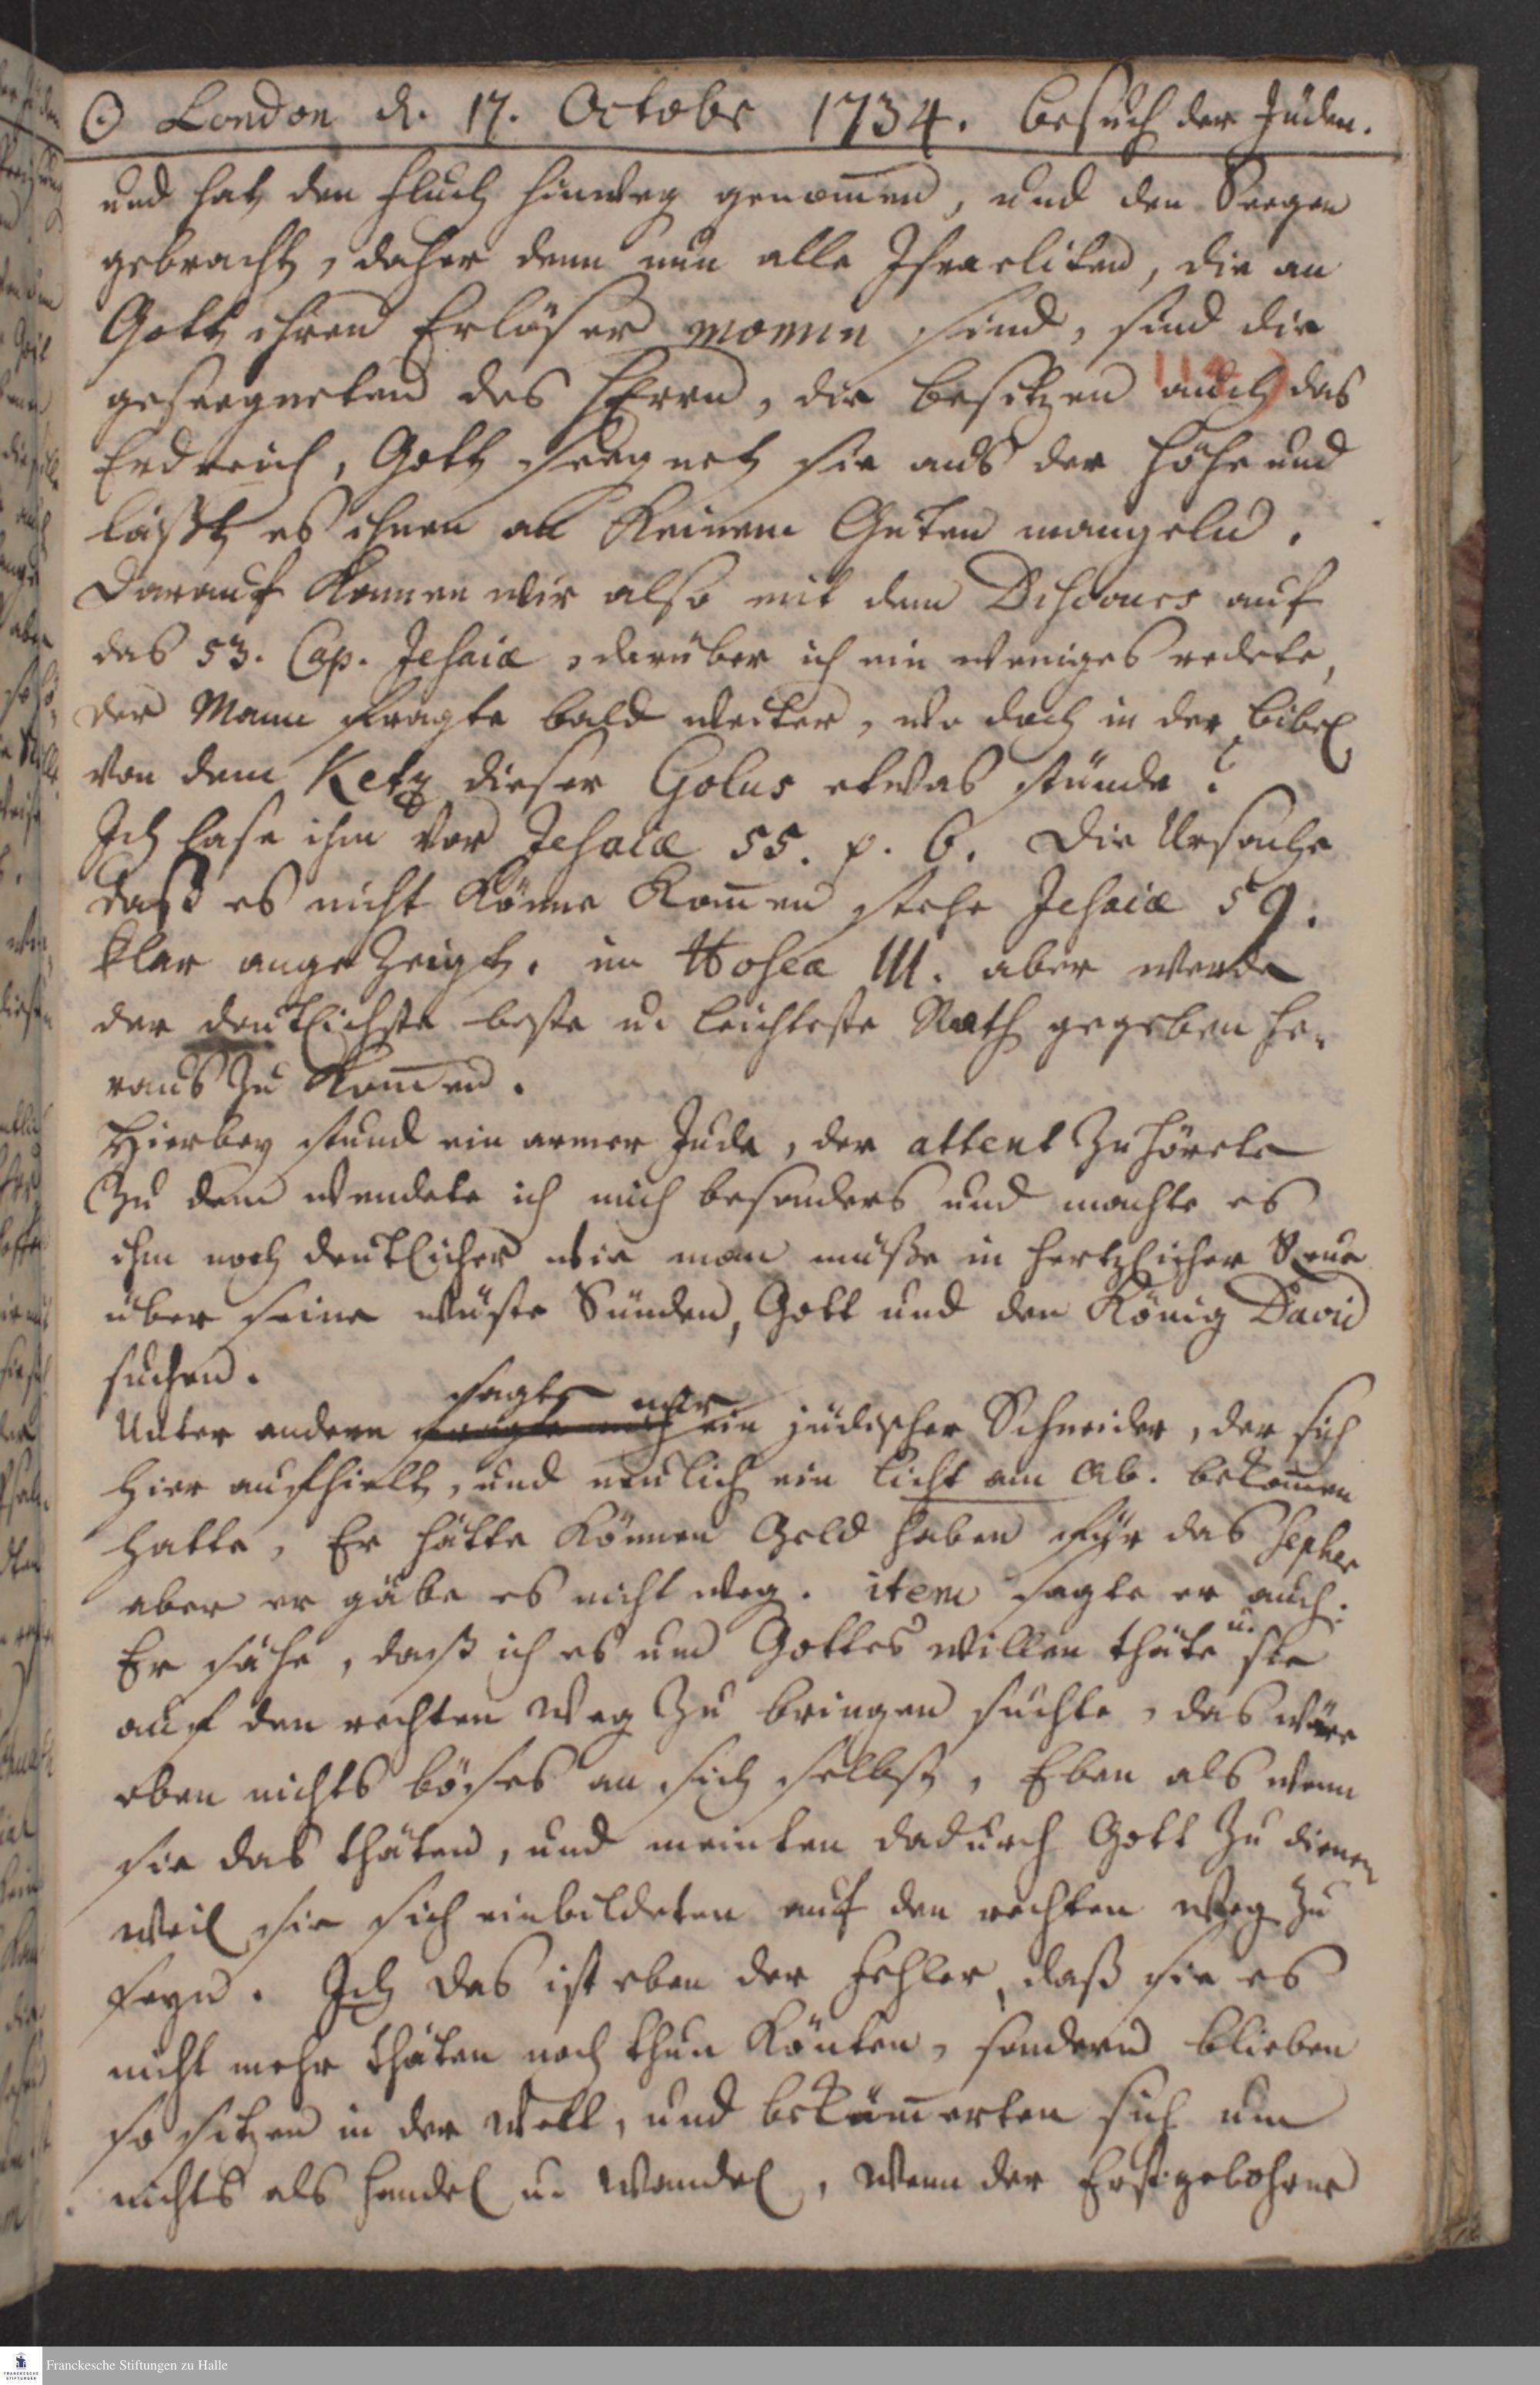 ☉ London d. 17. Octobr 1734. Besuch der Juden.
und hat den Fluch hinweg genom̅en, und den Seegen
gebracht, daher denn nun alle Israeliten, die an
Gott ihren Erlöser momin sind, sind die
geseegneten des HErrn, die besitzen auch das
Erdreich, Gott seegnet sie aus der Höhe und
läßt es ihnen an keinem Guten mangeln.
Darauf kamen wir also mit dem Discours auf
das 53. Cap. Jesaiæ, darüber ich ein weniges redete,
der Mann fragte bald weiter, wo doch in der Bibel
von dem Ketz dieser Golus etwas stünde?
Ich lase ihm vor Jesaiæ 55. v. 6. Die Ursache
daß es nicht könne kom̅en stehe Jesaiæ 59.
klar angezeigt. im Hosea III. aber werde
der deutlichste beste u. leichteste Rath gegeben he-
raus zu kom̅en.
Hierbey stund ein armer Jude, der attent zuhörete
Zu dem wendete ich mich besonders und machte es
ihm noch deutlicher wie man müße in hertzlicher Reue
über seine wüste Sünden, Gott und den König David
suchen.
sagte mir
Unter andern fragte mich ein jüdischer Schneider, der sich
hier aufhielt, und neulich ein Licht am Ab. bekom̅en
hatte, Er hätte können Geld haben für das Sepher
aber er gäbe es nicht weg. item sagte er auch:
Er sähe, daß ich es um Gottes willen thäte u. sie
auf den rechten Weg zu bringen suchte, das wäre
eben nichts böses an sich selbst, Eben als wenn
sie das thäten, und meinten dadurch Gott zu dienen
weil sie sich einbildeten auf den rechten Weg zu
seyn. Ich das ist eben der Fehler, daß sie es
nicht mehr thäten noch thun könten, sondern blieben
so sitzen in der Welt, und bekümerten sich um
nichts als Handel u. Wandel, Wenn der Erstgebohrne
Franckesche Stiftungen zu Halle